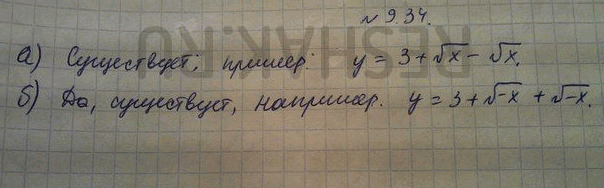 № 9.34.
а) Существует; пример: y = 3 + √x - √x.
б) Да, существует, например. y = 3 + √-x + √-x.
RESHAK.RU